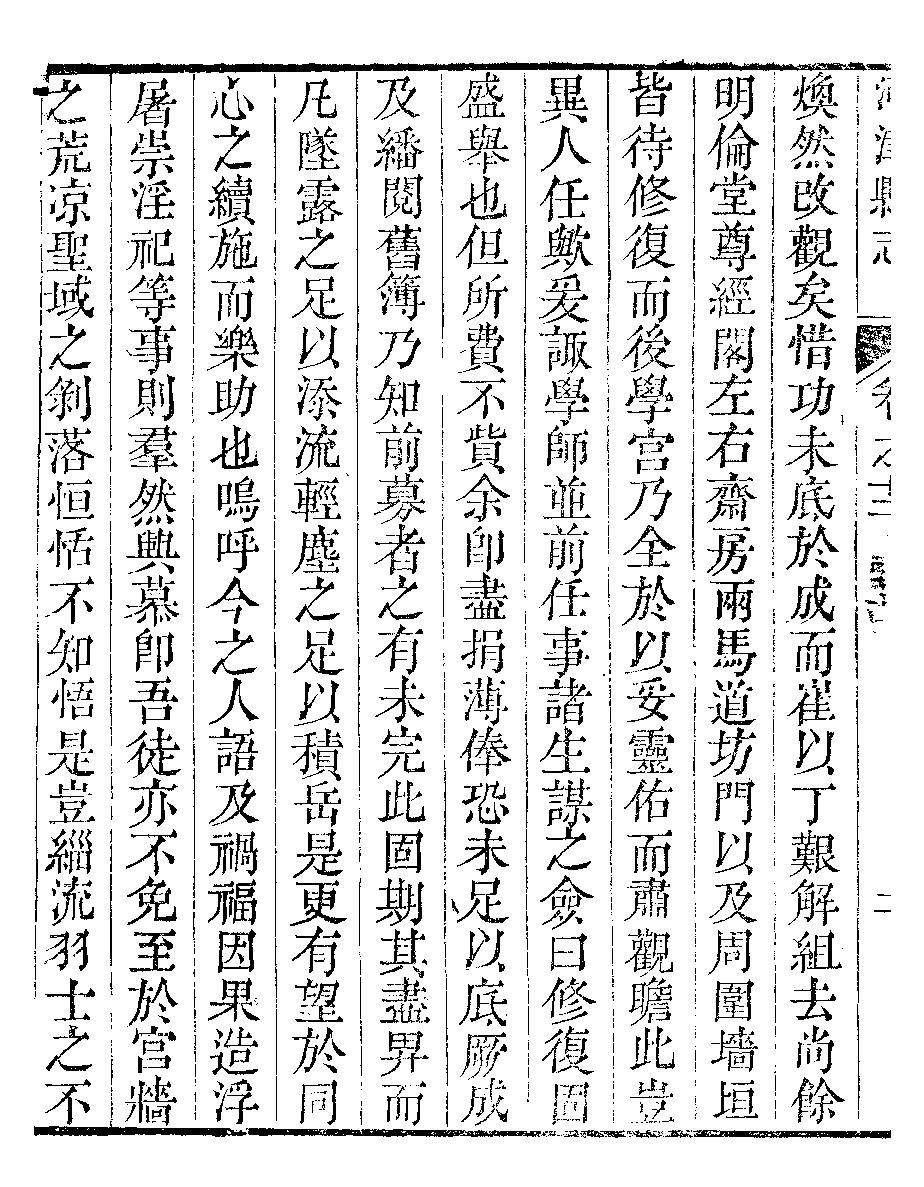 河津縣志 卷之十二
煥然改觀矣惜功未底於成而崔以丁艱解組去尚餘
明倫堂尊經閣左右齋房兩馬道坊門以及周圍墻垣
皆待修復而後學宮乃全於以妥靈佑而肅觀瞻此豈
異人任歟爰諏學師並前任事諸生謀之僉曰修復固
盛舉也但所費不貲余卽盡捐薄俸恐未足以底厥成
及繙閱舊簿乃知前募者之有未完此固期其盡畀而
凡墜露之足以添流輕塵之足以積岳是更有望於同
心之續施而樂助也嗚呼今之人語及禍福因果造浮
屠崇淫祀等事則羣然興慕卽吾徒亦不免至於宮牆
之荒凉聖域之剝落恒恬不知悟是豈緇流羽士之不